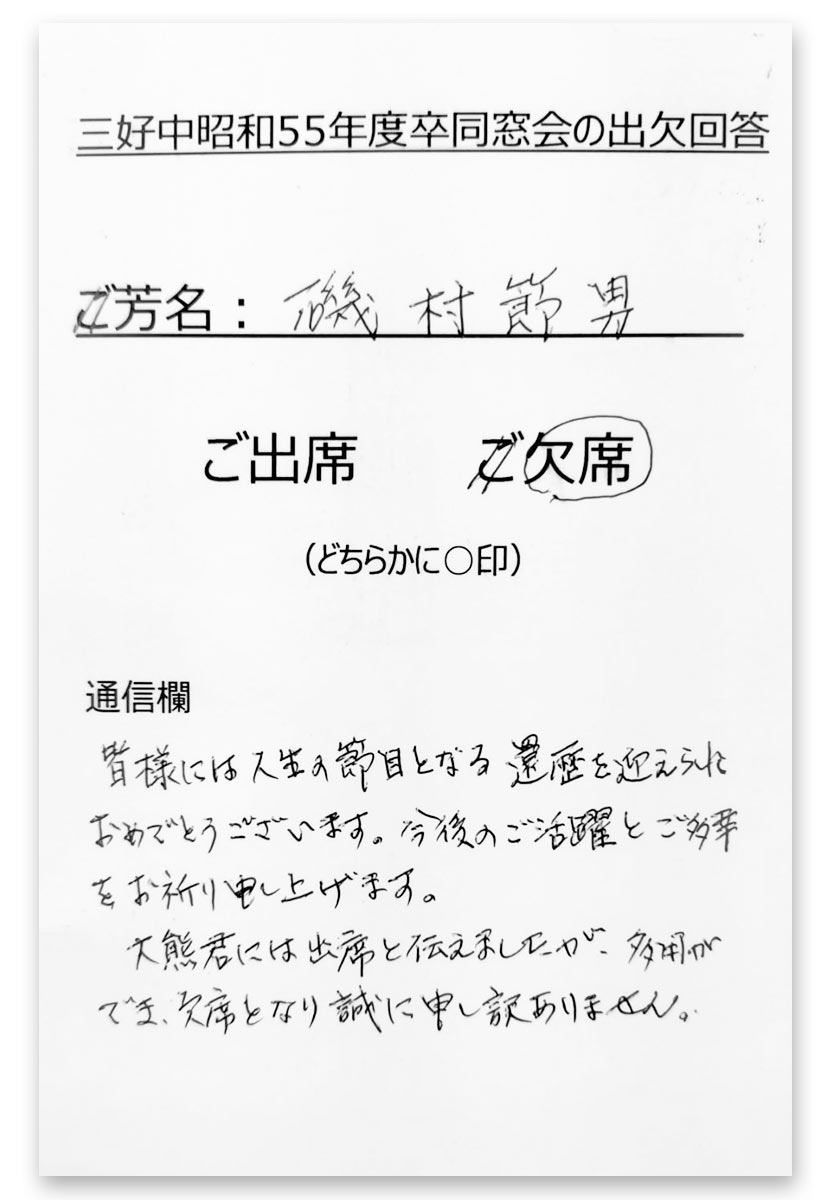 三好中昭和55年度卒同窓会の出欠回答
ご芳名： 磯村節男
ご出席 ご欠席
（どちらかに○印）
通信欄
皆様には人生の節目となる還暦を迎えられ
おめでとうございます。今後のご活躍とご多幸
をお祈り申し上げます。
大熊君には出席と伝えましたが、多用が
でき、欠席となり誠に申し訳ありません。